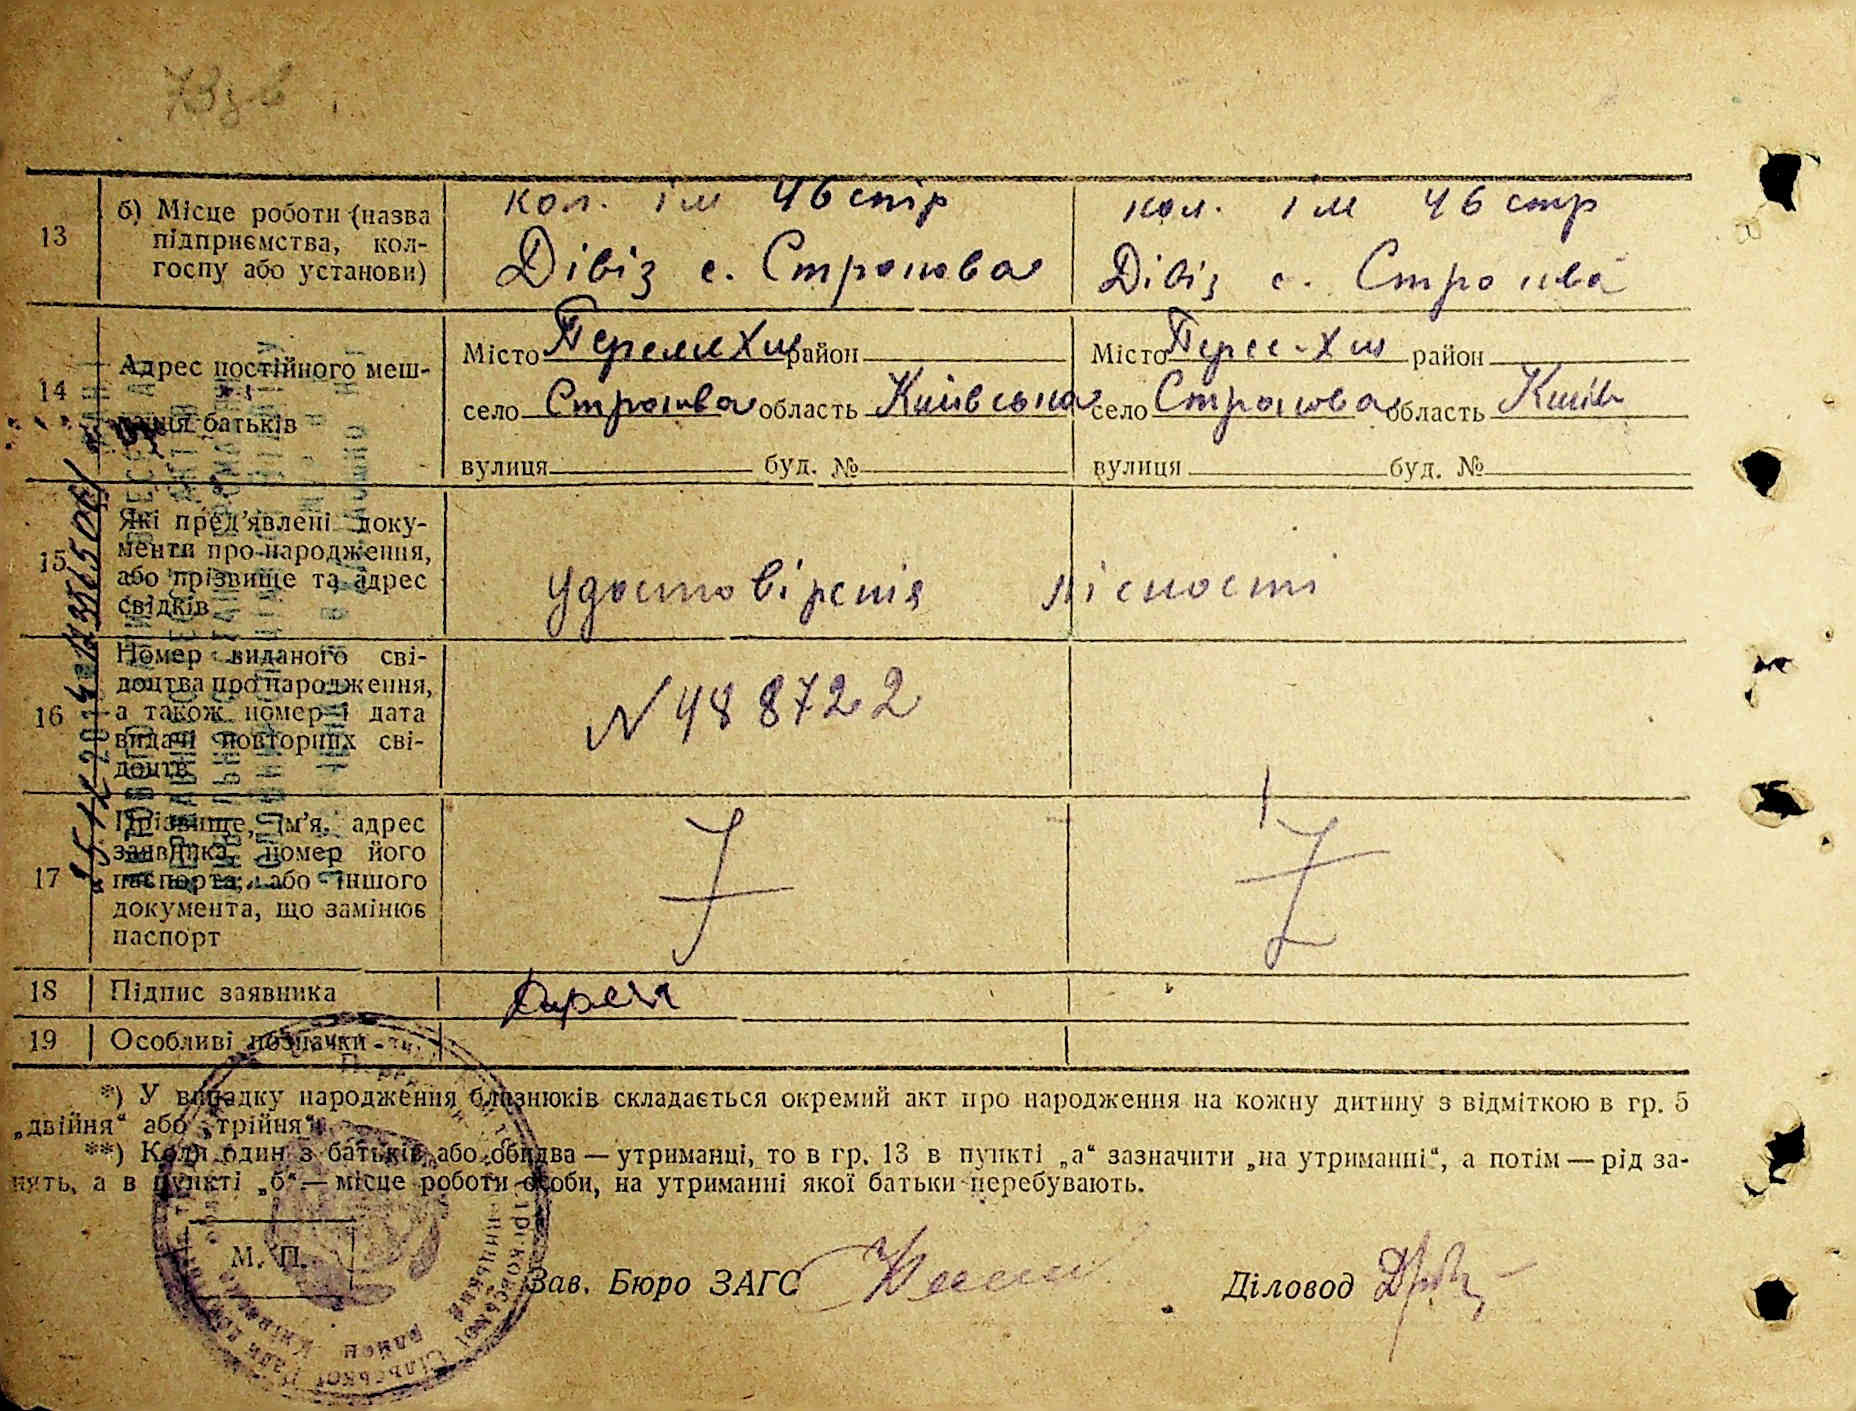 13
б) Місце роботи (назва
підприємства, кол-
госпу або установи)
кол. ім 46 стр
Дівіз с. Строкова
кол. ім 46 стр
Дівіз с. Строкова
14
Адрес постійного меш-
кання батьків
Місто Перем Хм район
село Строкова область Київська
вулиця буд. №
Місто Пере-Хм район
село Строкова область Київ
вулиця буд. №
15
Які пред'явлені доку-
менти про народження,
або прізвище та адрес
свідків
удостовірєнія лісності
16
Номер виданого сві-
доцтва про народження,
а також номер і дата
видачі повторних сві-
доцтв
N 488722
17
Прізвище, ім'я, адрес
заявника, номер його
паспорта, або іншого
документа, що замінює
паспорт
18
Підпис заявника
19
Особливі позначки
*) У випадку народження близнюків складається окремий акт про народження на кожну дитину з відміткою в гр. 5
„двійня“ або „трійня“.
**) Коли один з батьків, або обидва — утриманці, то в гр. 13 в пункті „а“ зазначити „на утриманні“, а потім — рід за-
нять, а в пункті „б“ — місце роботи особи, на утриманні якої батьки перебувають.
М. П.
Зав. Бюро ЗАГС
Діловод